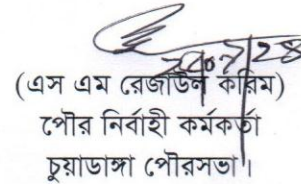 (এস এম রেজাউল করিম)
পৌর নির্বাহী কর্মকর্তা
চুয়াডাঙ্গা পৌরসভা।